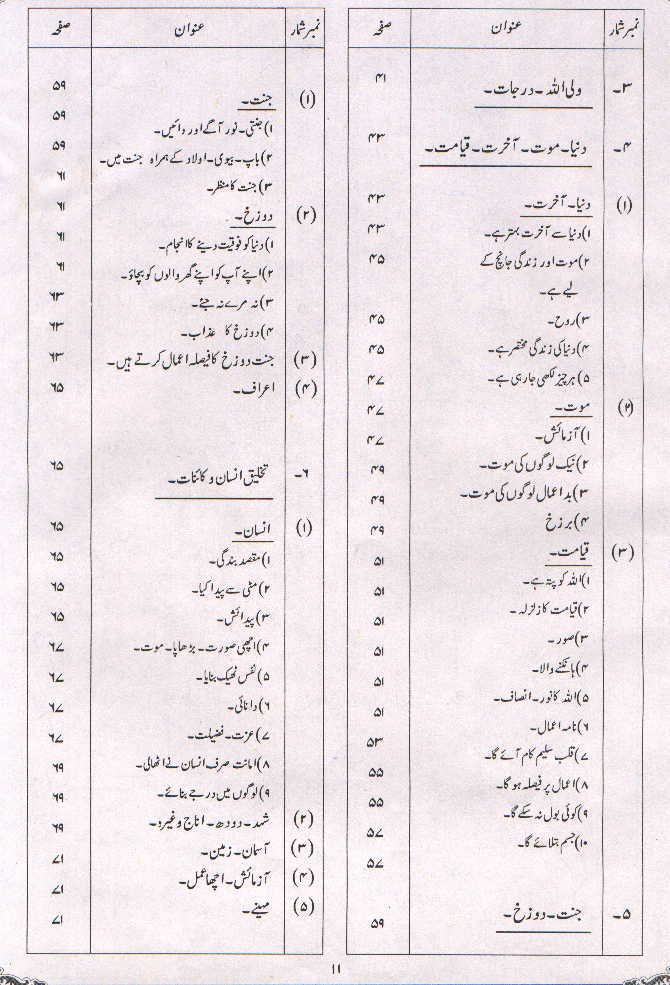 نمبر شمار عنوان صفحہ
۳۔ ولی اللہ۔ درجات۔ ۴۱
۴۔ دنیا۔ موت۔ آخرت۔ قیامت۔ ۴۳
(۱) دنیا۔ آخرت۔ ۴۳
۱) دنیا سے آخرت بہتر ہے۔ ۴۳
۲) موت اور زندگی جانچ کے ۴۵
لیے ہے۔
۳) روح۔ ۴۵
۴) دنیا کی زندگی مختصر ہے۔ ۴۵
۵) ہر چیز لکھی جا رہی ہے۔ ۴۷
(۲) موت۔ ۴۷
۱) آزمائش۔ ۴۷
۲) نیک لوگوں کی موت۔ ۴۹
۳) بد اعمال لوگوں کی موت۔ ۴۹
۴) برزخ ۴۹
(۳) قیامت۔ ۵۱
۱) اللہ کو پتہ ہے۔ ۵۱
۲) قیامت کا زلزلہ۔ ۵۱
۳) صور۔ ۵۱
۴) ہانکنے والا۔ ۵۱
۵) اللہ کا نور۔ انصاف۔ ۵۱
۶) نامہ اعمال۔ ۵۳
۷) قلب سلیم کام آئے گا۔ ۵۵
۸) اعمال پر فیصلہ ہو گا۔ ۵۵
۹) کوئی بول نہ سکے گا۔ ۵۷
۱۰) جسم بتلائے گا۔ ۵۷
۵۔ جنت۔ دوزخ۔ ۵۹
نمبر شمار عنوان صفحہ
(۱) جنت۔ ۵۹
۱) جنتی۔ نور آگے اور دائیں۔ ۵۹
۲) باپ۔ بیوی۔ اولاد کے ہمراہ جنت میں۔ ۵۹
۳) جنت کا منظر۔ ۶۱
(۲) دوزخ۔ ۶۱
۱) دنیا کو فوقیت دینے کا انجام۔ ۶۱
۲) اپنے آپ کو اپنے گھر والوں کو بچاؤ۔ ۶۱
۳) نہ مرے نہ جئے۔ ۶۳
۴) دوزخ کا عذاب۔ ۶۳
(۳) جنت دوزخ کا فیصلہ اعمال کرتے ہیں۔ ۶۳
(۴) اعراف۔ ۶۵
۶۔ تخلیق انسان و کائنات۔ ۶۵
(۱) انسان۔ ۶۵
۱) مقصد بندگی۔ ۶۵
۲) مٹی سے پیدا کیا۔ ۶۵
۳) پیدائش۔ ۶۵
۴) اچھی صورت۔ بڑھاپا۔ موت۔ ۶۷
۵) نفس ٹھیک بنایا۔ ۶۷
۶) دانائی۔ ۶۷
۷) عزت۔ فضیلت۔ ۶۷
۸) امانت صرف انسان نے اٹھالی۔ ۶۹
۹) لوگوں میں درجے بنائے۔ ۶۹
(۲) شہد۔ دودھ۔ اناج وغیرہ۔ ۶۹
(۳) آسمان۔ زمین۔ ۷۱
(۴) آزمائش۔ اچھا عمل۔ ۷۱
(۵) مہینے۔ ۷۱
۱۱